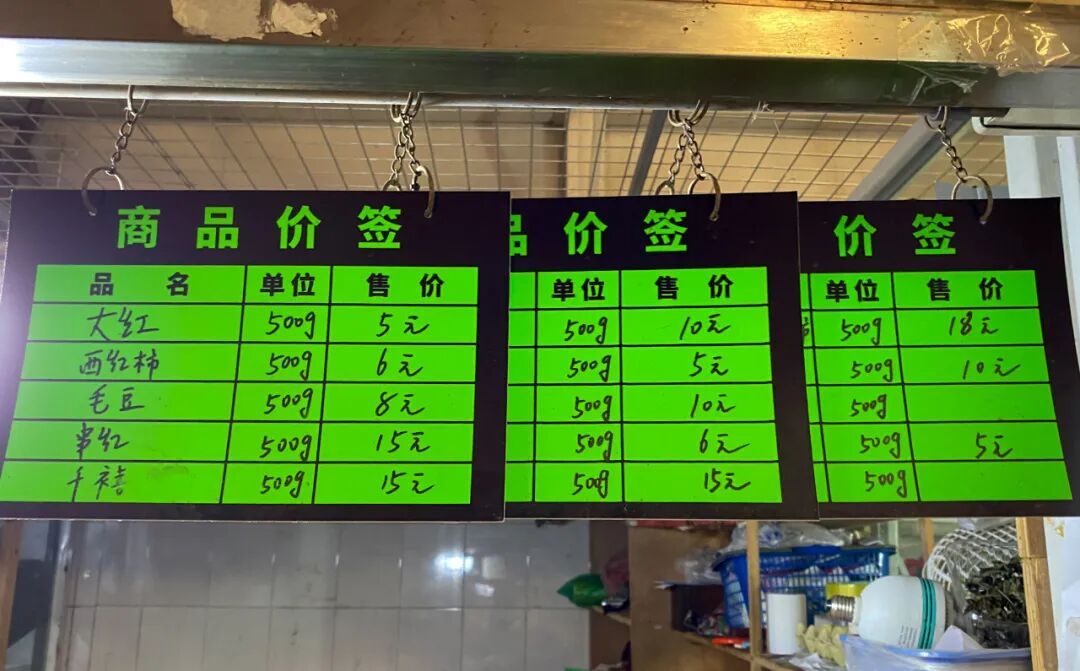 商品价签
品名 单位 售价
大红 500g 5元
西红柿 500g 6元
毛豆 500g 8元
串红 500g 15元
千禧 500g 15元
品价签
单位 售价
500g 10元
500g 5元
500g 10元
500g 6元
500g 15元
价签
单位 售价
500g 18元
500g 10元
500g
500g 5元
500g